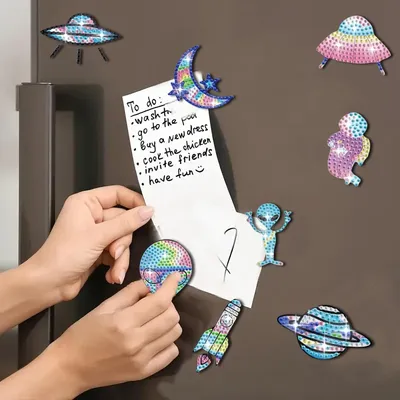 To do:
• wash th
• go to the pool
• buy a new dress
• cook the chicken
• invite friends
• have fun☺